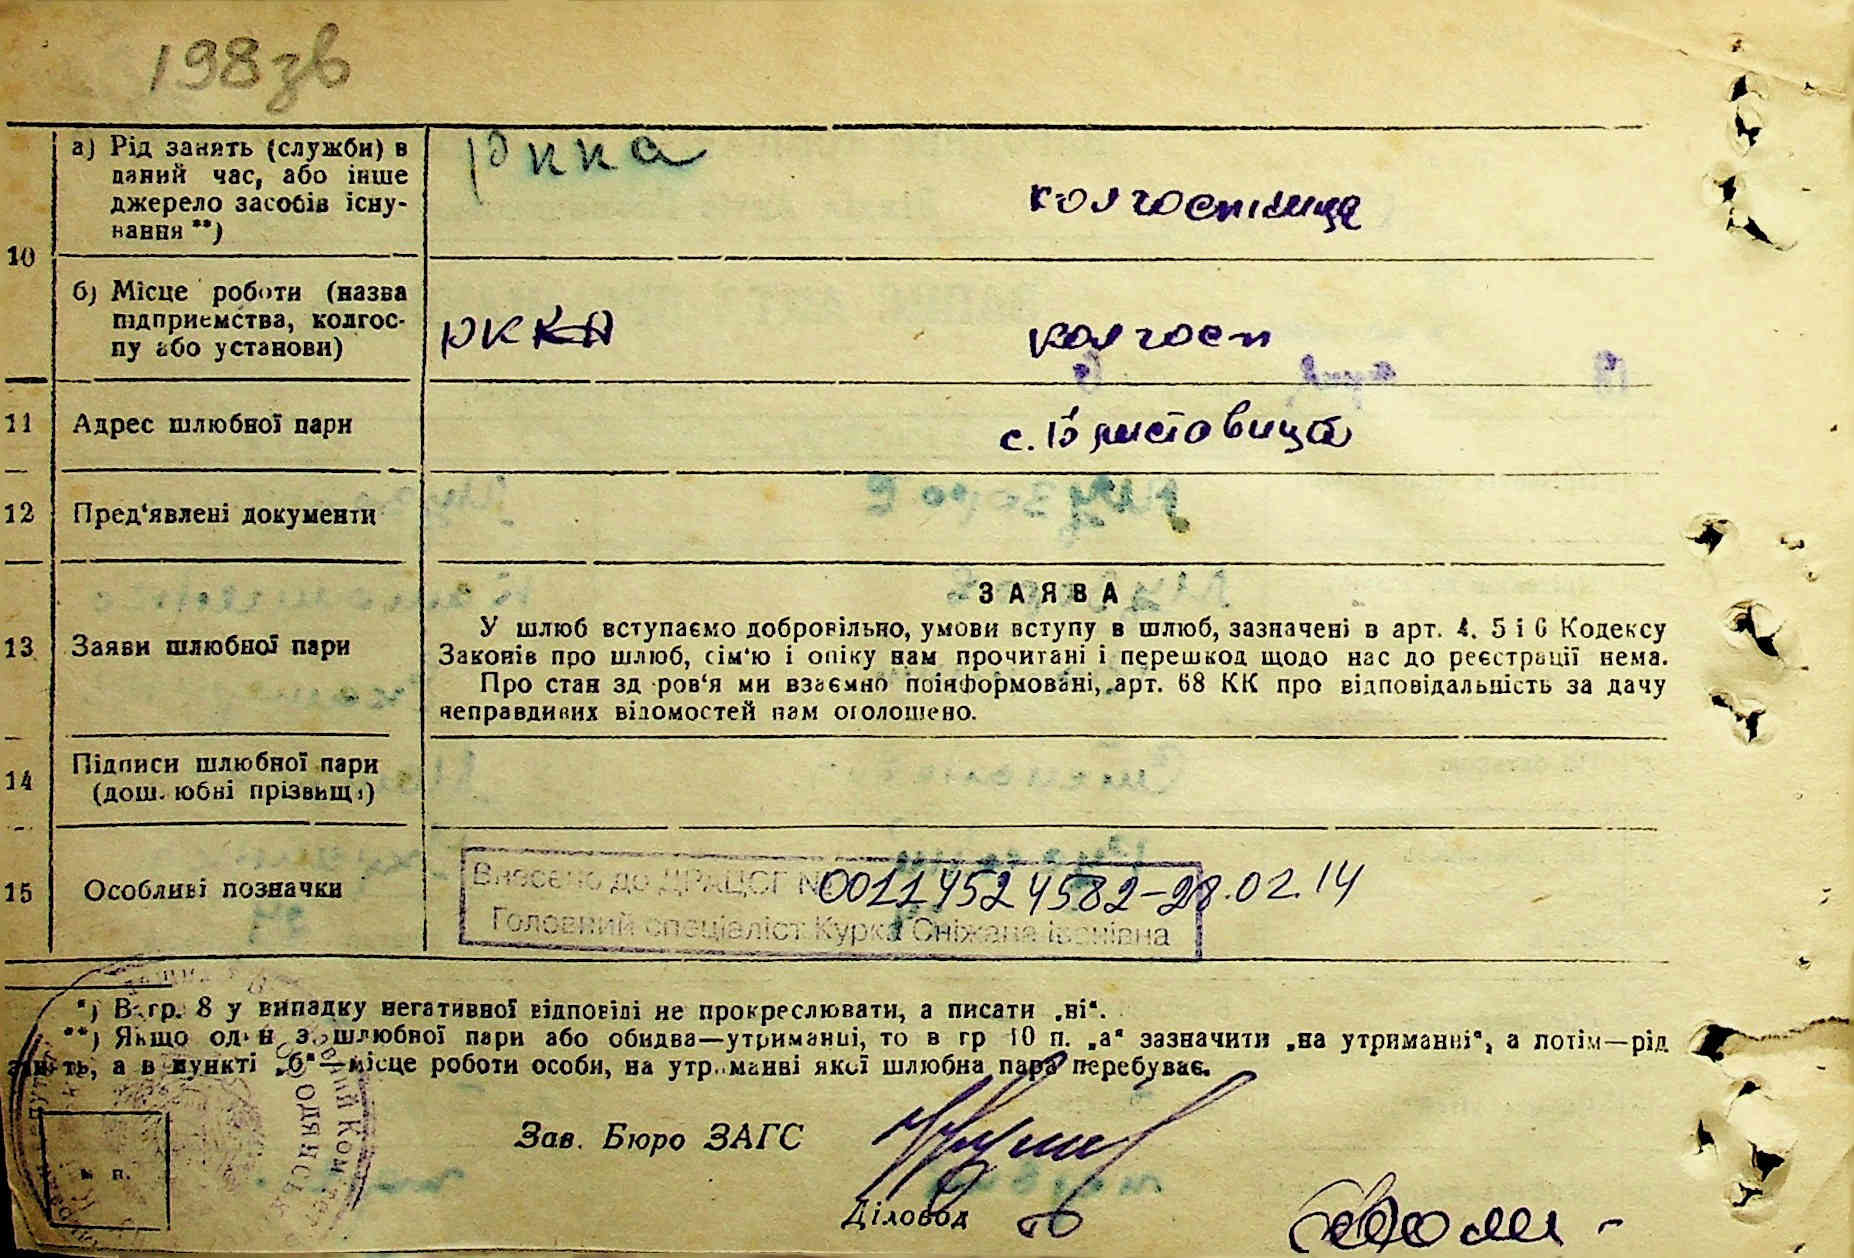 198зв
а) Рід занять (служби) в
даний час, або інше
джерело засобів існу-
вання **)
ркка
колгоспниця
10
б) Місце роботи (назва
підприємства, колгос-
пу або установи)
РККА
колгосп
11 Адрес шлюбної пари
с.
12 Пред'явлені документи
13 Заяви шлюбної пари
ЗАЯВА
У шлюб вступаємо добровільно, умови вступу в шлюб, зазначені в арт. 4. 5 і 6 Кодексу
Законів про шлюб, сім'ю і опіку нам прочитані і перешкод щодо нас до реєстрації нема.
Про стан здоров'я ми взаємно поінформовані, арт. 68 КК про відповідальність за дачу
неправдивих відомостей нам оголошено.
14 Підписи шлюбної пари
(дошлюбні прізвищі)
15 Особливі позначки
Внесено до ДРАЦСГ № 00114524582-28.02.14
Головний спеціаліст Курка Сніжана Іванівна
*) В гр. 8 у випадку негативної відповіді не прокреслювати, а писати „ні“.
**) Якщо один з шлюбної пари або обидва—утриманці, то в гр 10 п. „а“ зазначити „на утриманні“, а потім—рід
занять, а в пункті „б“—місце роботи особи, на утриманні якої шлюбна пара перебуває.
Зав. Бюро ЗАГС
Діловод
м. п.